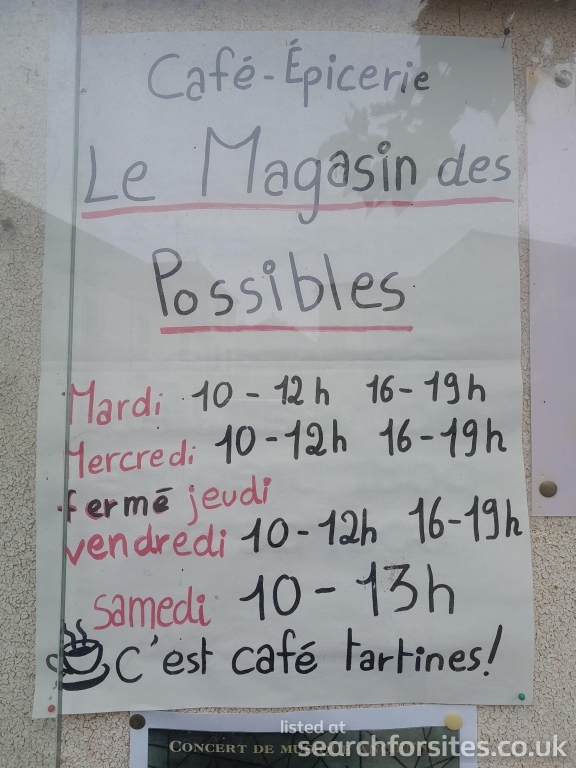 Café-Épicerie
Le Magasin des
Possibles
Mardi 10-12h 16-19h
Mercredi 10-12h 16-19h
fermé jeudi
vendredi 10-12h 16-19h
samedi 10-13h
C'est café tartines!
listed at
CONCERT DE
searchforsites.co.uk